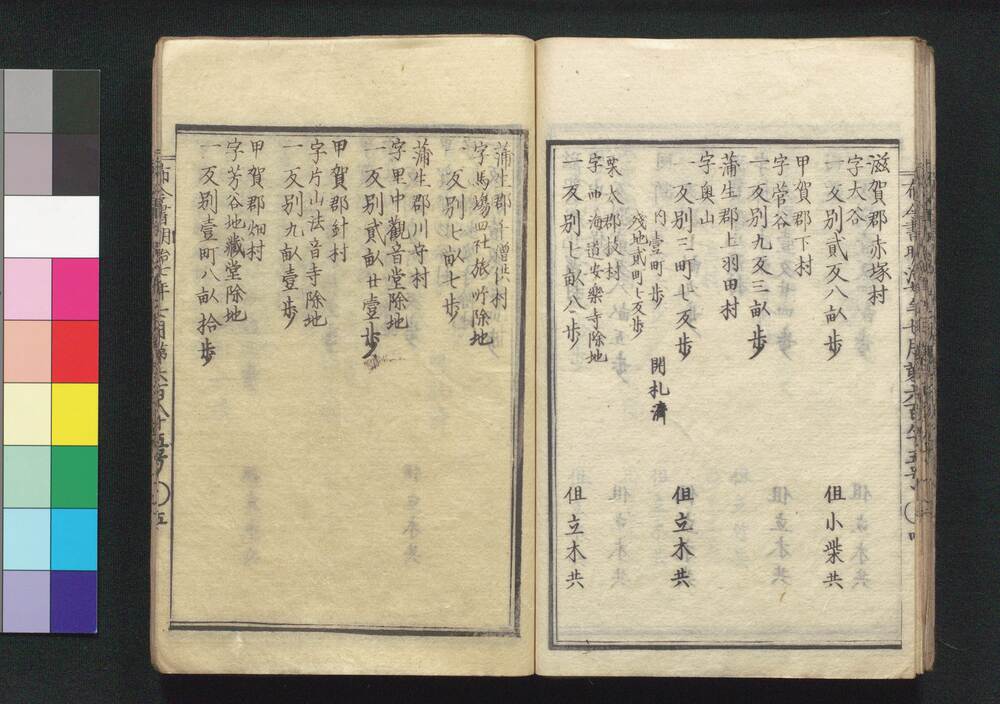 滋賀郡赤塚村
字大谷
一反別貳反八畝歩 但小柴共
甲賀郡下村
字菅谷
一反別九反三畝歩
蒲生郡上羽田村
字奥山
一反別三町七反歩 但立木共
内壹町歩 開札濟
殘地貳町七反歩
栗太郡技村
字西海道安樂寺除地
一反別七畝八歩 但立木共
布令書明治七年七月第六百八十五号 四
蒲生郡千僧供村
字馬場四社旅所除地
一反別七畝七歩
蒲生郡川守村
字里中觀音堂除地
一反別貳畝廿壹歩
甲賀郡針村
字片山法音寺除地
一反別九畝壹歩
甲賀郡畑村
字芳谷地藏堂除地
一反別壹町八畝拾歩
布令書明治七年七月第六百八十五号 五